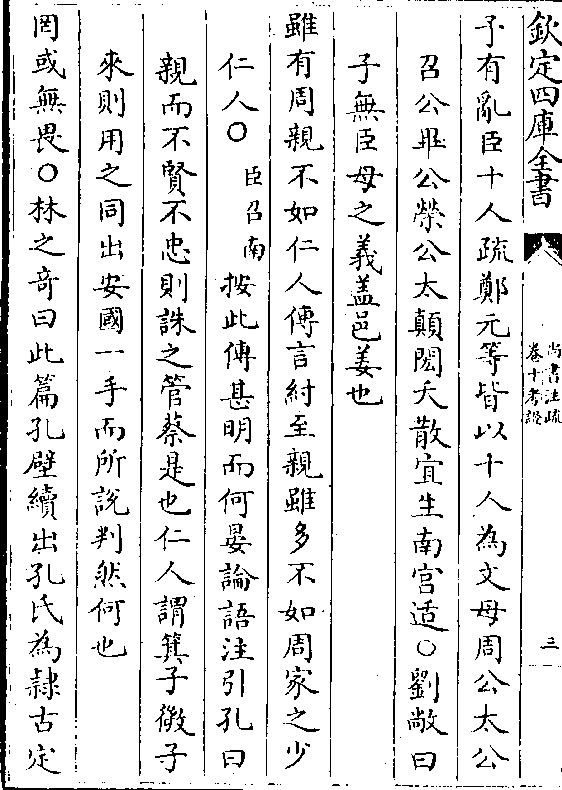 欽定四庫全書
尚書注疏
卷十考證
三
予有亂臣十人疏鄭元等皆以十人為文母周公太公
召公畢公榮公太顛閎夭散宜生南宫适○劉敞曰
子無臣母之義盖邑姜也
雖有周親不如仁人傳言紂至親雖多不如周家之少
仁人○臣召南按此傳甚明而何晏論語注引孔曰
親而不賢不忠則誅之管蔡是也仁人謂箕子微子
來則用之同出安國一手而所說判然何也
罔或無畏○林之奇曰此篇孔壁續出孔氏為隸古定